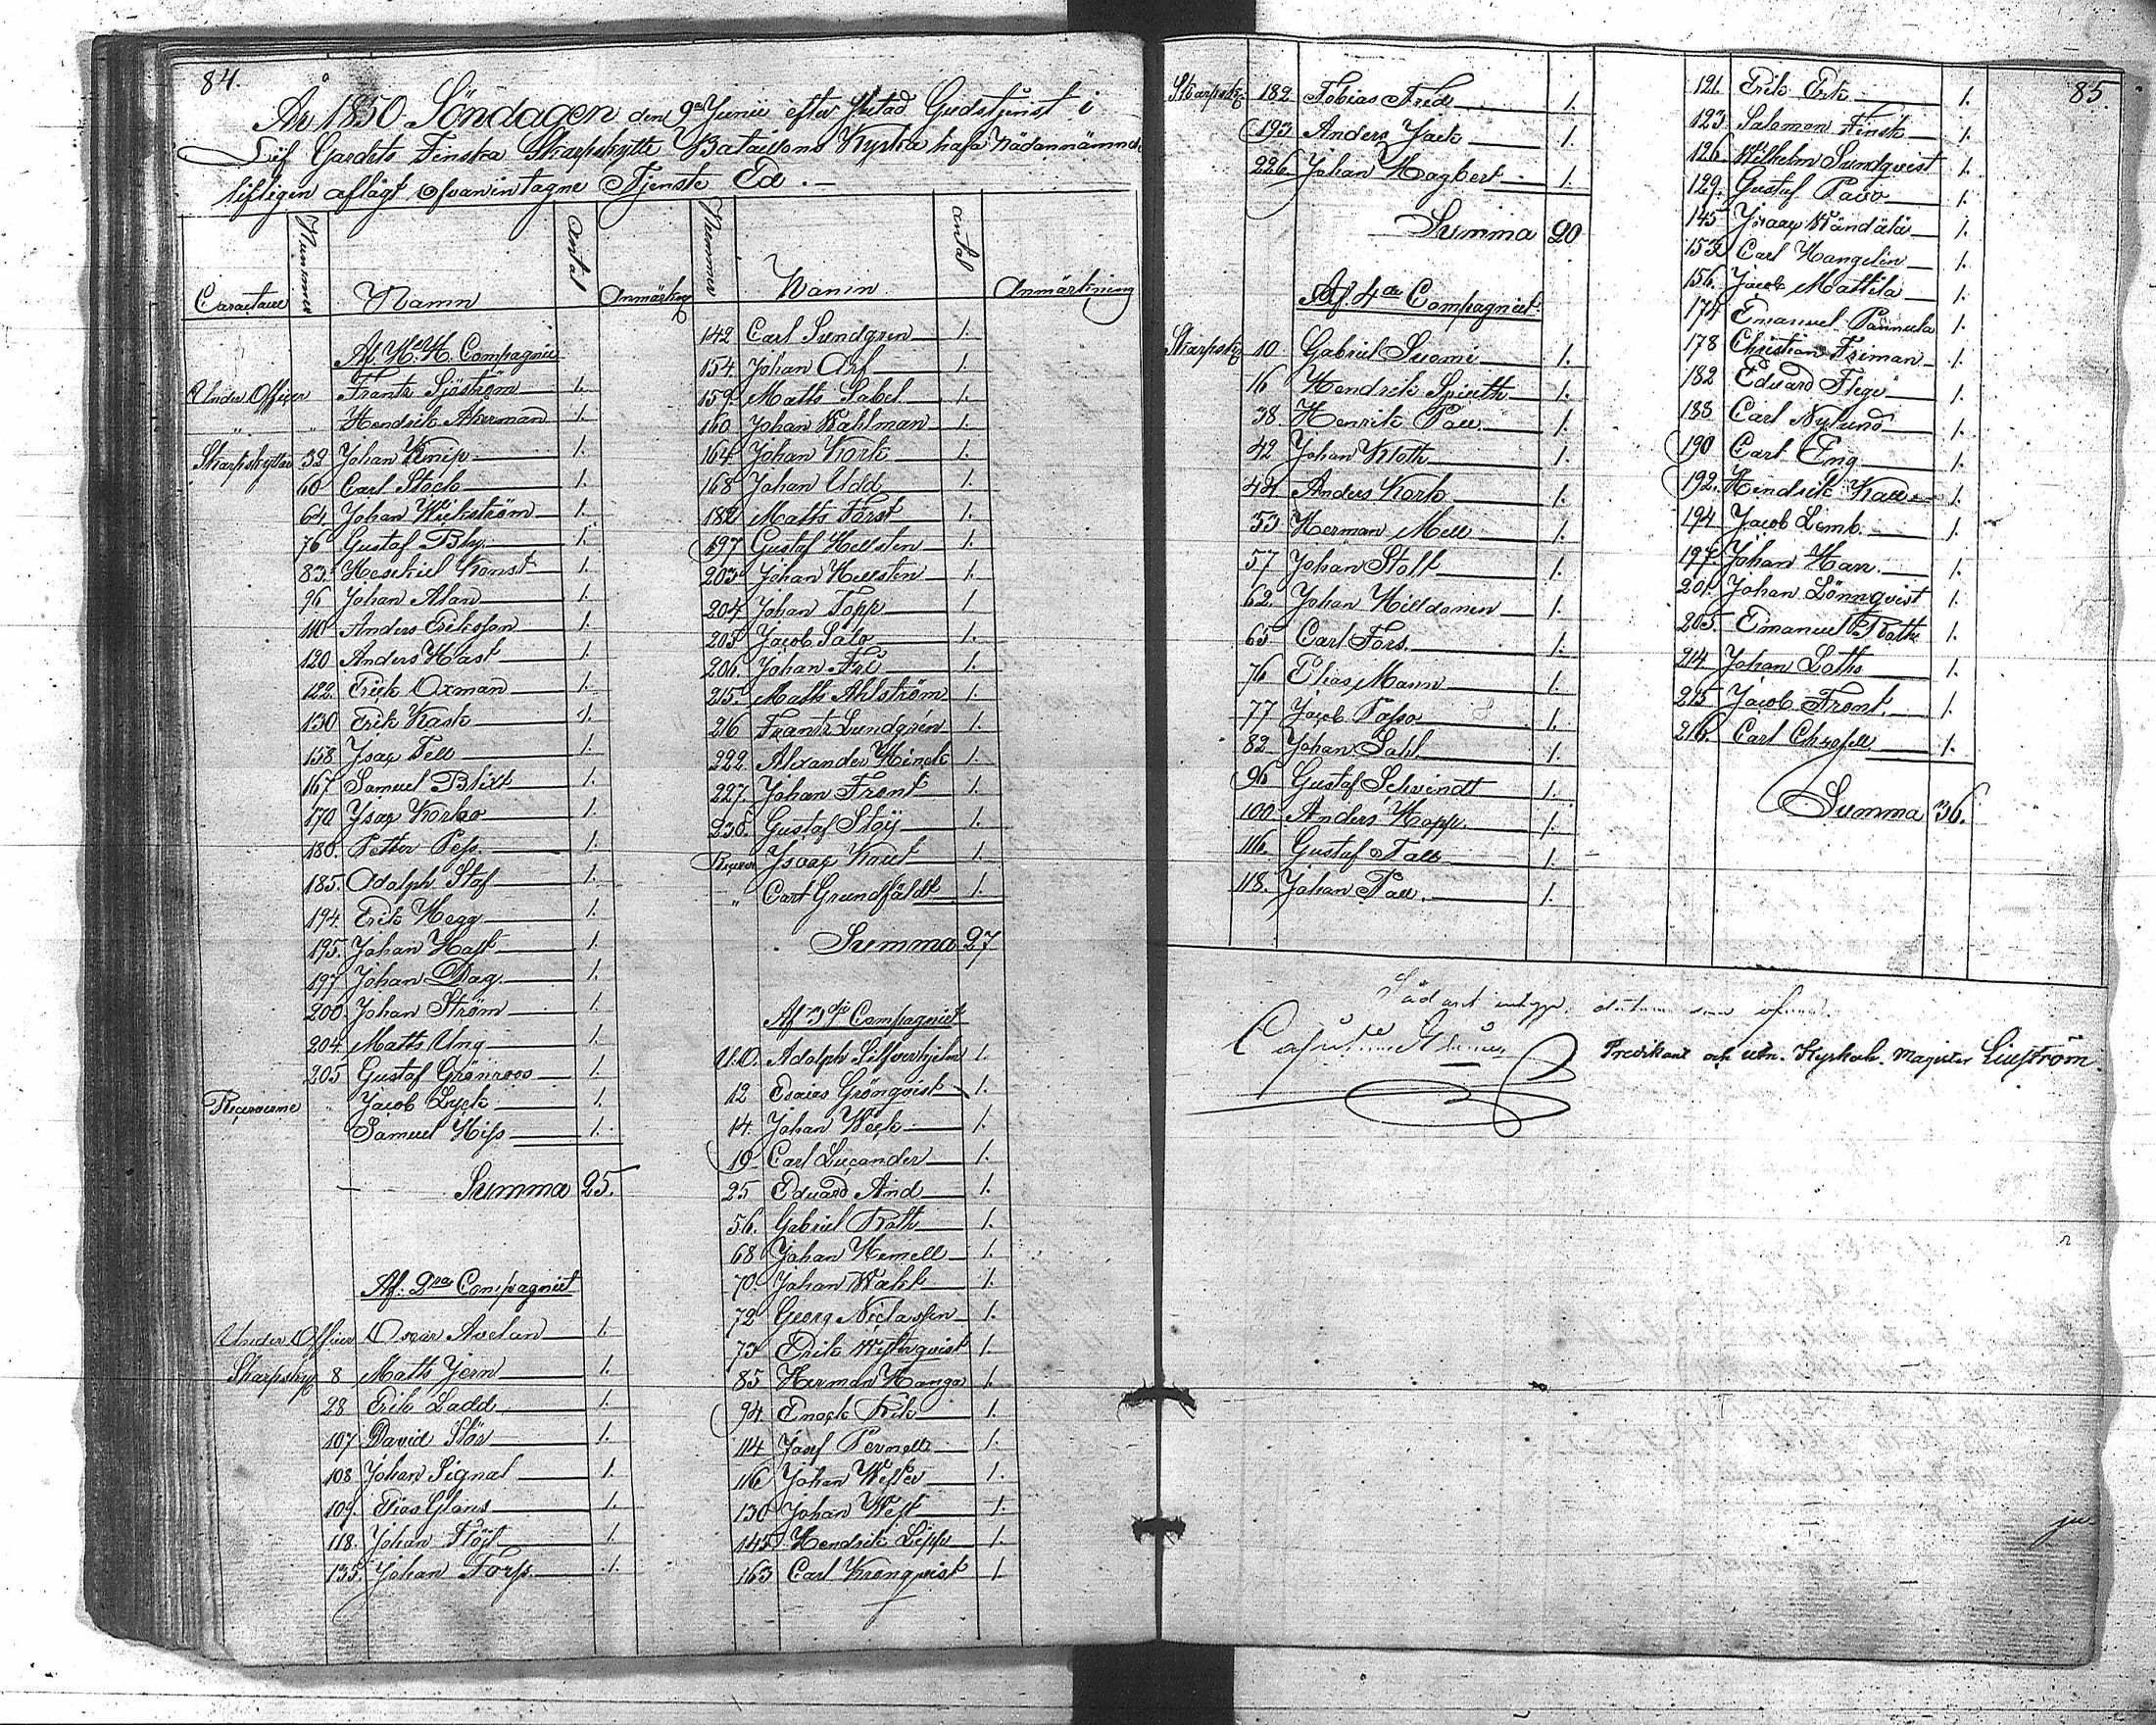 84.
År 1850 Söndagen den 9de Junii efter Gudstjenst i
Lif Gardets Finska Skarpskytte Bataillons Kyrka hafa Nädannämnde
lifligen aflagt ofvanintagne Tjenste Ed.
Caractaire Nummer Namn Antal Anmärkng
Af H. H. Compagnie
Under Officer Frantz Sjöström 1.
" " Hendrik Åkerman 1.
Skarpskytten 32 Johan Knip 1.
60 Carl Stock 1.
64. Johan Wickström 1.
76 Gustaf Bly 1.
83. Hesekiel Konst 1.
96 Johan Alan 1.
110 Anders Eriksson 1.
120 Anders Hast 1.
122. Erik Oxman 1.
130 Erik Kask 1.
158 Isac Fell 1.
167 Samuel Blixt 1.
170 Isac Korbo 1.
180. Petter Pess 1.
185. Adolph Staf 1.
194. Erik Hegg 1.
195. Johan Hast 1.
197 Johan Dag 1.
200 Johan Ström 1.
204. Matts Ung 1.
205 Gustaf Grönroos 1.
" Jacob Lyck 1.
Samuel Hiss 1.
Summa 25.
Af. 2dra Compagniet
Under Officer Oscar Avelan 1.
Skarpsky 8 Matts Jern 1.
28 Erik Ladd 1.
107 David Stör 1.
108 Johan Signal 1.
109. Elias Glans 1.
118. Johan Flöjt 1.
135. Johan Torp 1.
Nummer Namn Antal Anmärkning
142 Carl Sundgren 1.
154. Johan Arf 1.
159. Matts Sabel 1.
160 Johan Kahlman 1.
164. Johan Kork 1.
168 Johan Udd 1.
182 Matts Forst 1.
197 Gustaf Hellsten 1.
203. Johan Hellsten 1.
204. Johan Topp 1.
205 Jacob Salo 1.
206. Johan Fri 1.
215. Matts Ahlström 1.
216 Frantz Lundgrén 1.
222. Alexander Hinck 1.
227. Johan Front 1.
230. Gustaf Stöÿ 1.
Isaac Knut 1.
" Carl Grundfäldt 1.
Summa 27
Af 3dje Compagniet
U.O. Adolph Silfverhjelm 1.
12 Esaias Grönqvist 1.
14. Johan Weck 1.
19 Carl Lucander 1.
25 Eduard And 1.
56. Gabriel Roth 1.
68 Johan Hemell 1.
70. Johan Wakt 1.
72 Georg Niclassen 1.
73 Erik Westerqvist 1.
85 Herman Hanga 1.
94. Enock Rik 1.
114 Josef Pernell 1.
116 Johan Wester 1.
130 Johan West 1.
145. Hendrik Lipp 1.
163 Carl Kronqvist 1.
85.
Skarpsk. 182. Tobias Frid 1.
193. Anders Jack 1.
226. Johan Hagbert 1.
Summa 20
Af. 4de Compagniet
Skarpsky 10. Gabriel Suomi 1.
16 Hendrik Spieth 1.
38. Henrik Pall 1.
42 Johan Kloth 1.
44 Anders Kork 1.
53 Herman Mell 1.
57 Johan Stolt 1.
62. Johan Hilldonen 1.
65 Carl Fors. 1.
76 Elias Mann 1.
77 Jacob Passo 1.
82. Johan Sahl 1.
96 Gustaf Schvindt 1.
100. Anders Hopp. 1.
116. Gustaf Tall 1.
118. Johan Pall. 1.
121. Erik Erk 1.
123. Salomon Finsk 1.
126. Wilhelm Sundqvist 1.
129. Gustaf Pavo 1.
145 Isaac Wändälä 1.
153. Carl Hangelin 1.
156. Jacob Mattila 1.
174 Emanuel Pannula 1.
178 Christian Friman 1.
182 Eduard Flege 1.
188 Carl Nylund 1.
190 Carl Eng 1.
192. Hendrik Kall 1.
194. Jacob Lemb. 1.
197. Johan Han. 1.
201. Johan Lönnqvist 1.
205. Emanuel Roth 1.
214. Johan Loths 1.
215 Jacob Front. 1.
216. Carl 1.
Summa 36.
Predikant och utn. Kyrkoh. Magister Liliström.